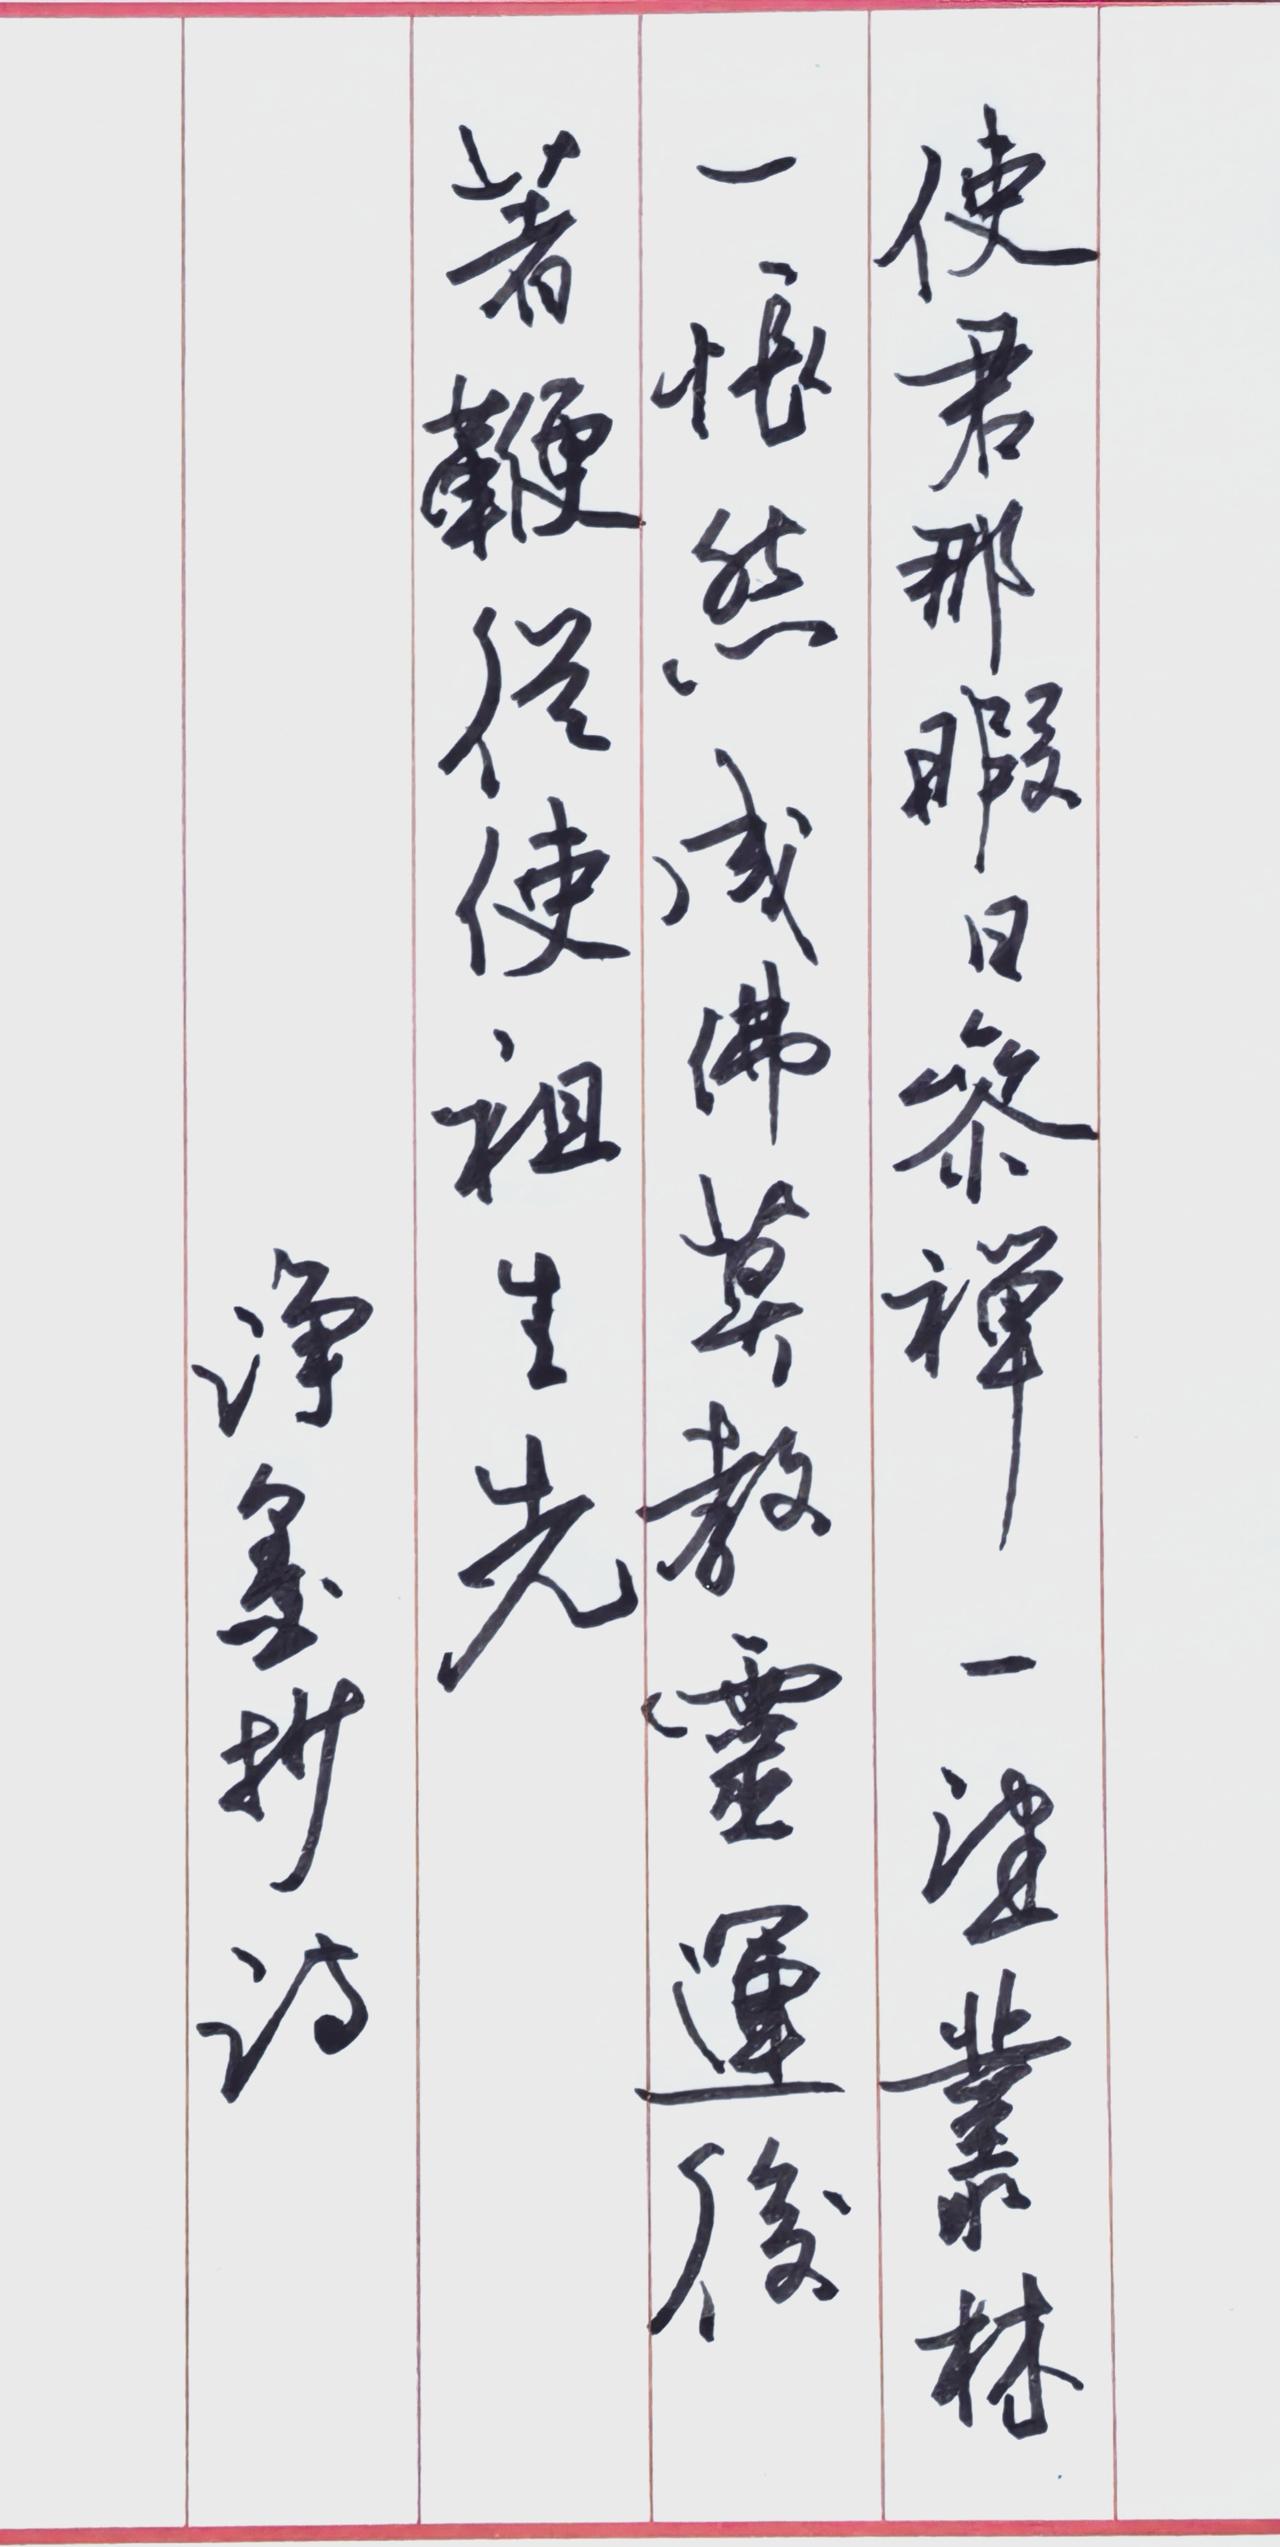 使君那暇日參禪一望叢林
一悵然成佛莫教靈運後
著鞭從使祖生先
淨墨抄詩